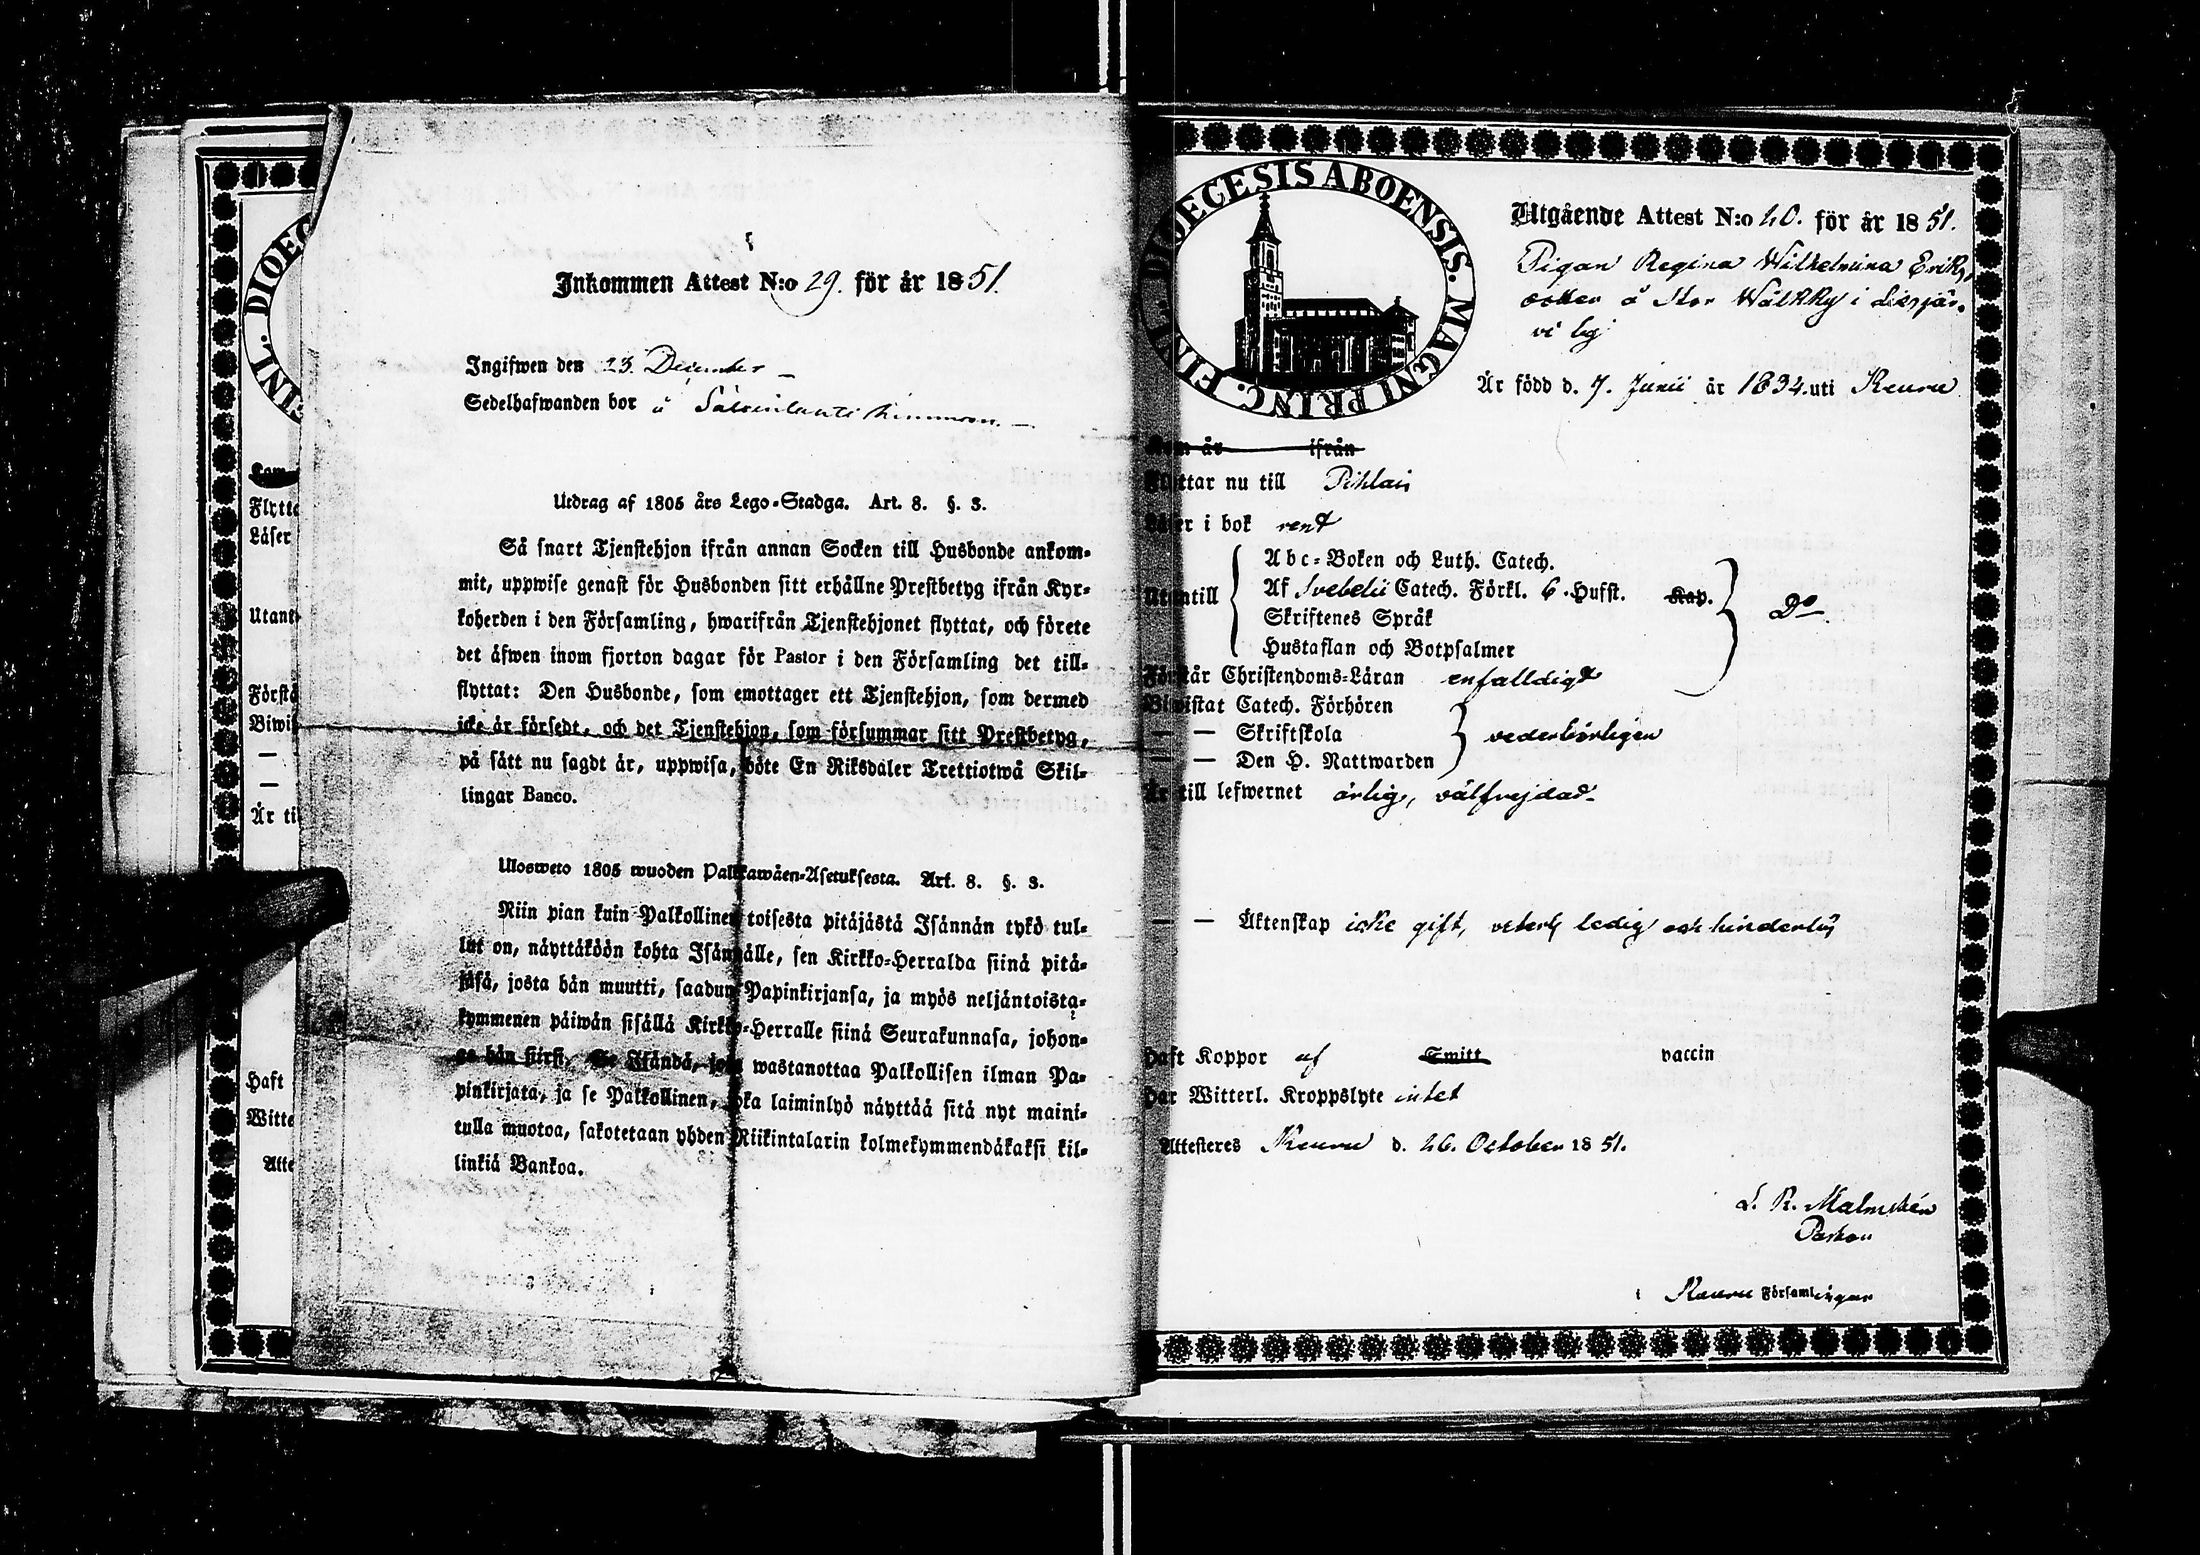 Inkommen Attest N:o 29. för år 1851.
Ingifwen den 23. December
Sedelhafwanden bor å
Utdrag af 1805 års Lego-Stadga. Art. 8. §. 3.
Så snart Tjenstehjon ifrån annan Socken till Husbonde ankom-
mit, uppwise genast för Husbonden sitt erhållne Prestbetyg ifrån Kyr-
koherden i den Församling, hwarifrån Tjenstehjonet flyttat, och förete
det äfwen inom fjorton dagar för Pastor i den Församling det till-
flyttat: Den Husbonde, som emottager ett Tjenstehjon, som dermed
icke är försedt, och det Tjenstehjon, som försummar sitt Prestbetyg,
på sätt nu sagdt är, uppwisa, böte En Riksdaler Trettiotwå Skil-
lingar Banco.
Ulosweto 1805 wuoden Palkkawäen-Asetuksesta. Art. 8. §. 3.
Niin pian kuin Palkollinen toisesta pitäjästä Isännän tykö tul-
lut on, näyttäköön kohta Isännälle, sen Kirkko-Herralda siinä pitä-
jäsä, josta hän muutti, saadun Papinkirjansa, ja myös neljäntoista-
kymmenen päiwän sisällä Kirkko-Herralle siinä Seurakunnasa, johon-
ga hän siirsi. Se Isändä, joka wastanottaa Palkollisen ilman Pa-
pinkirjata, ja se Palkollinen, joka laiminlyö näyttää sitä nyt maini-
tulla muotoa, sakotetaan yhden Riikintalarin kolmekymmendäkaksi kil-
linkiä Bankoa.
DIOEC
FINL.
Flytta
Läser
Utant
Förstå
Biwist
—
—
Är ti
Haft
Witte
Atte
FINL. DIOECESIS ABOENSIS. MAGNI PRINC.
Utgående Attest N:o 40. för år 1851.
Pigan Regina Wilhelmina Eriks
dotter å Stor Wälkky i Liesjär-
vi by
Är född d. 7. Junii år 1834. uti Keuru
Kom år ifrån
Flyttar nu till Pihlais
Läser i bok rent
Abc-Boken och Luth. Catech.
Utantill Af Svebelii Catech. Förkl. 6. Hufst. Kap. Do.
Skriftenes Språk
Hustaflan och Botpsalmer
Förstår Christendoms-Läran enfalldigt
Biwistat Catech. Förhören
— — Skriftskola vederbörligen
— — Den H. Nattwarden
Är till lefwernet ärlig, välfrejdad
— — Äktenskap icke gift, veterl. ledig och hinderlös
Haft Koppor af Smitt vaccin
Har Witterl. Kroppslyte intet
Attesteres Keuru d. 26. October 1851.
L. R. Malmstén
Pastor
i Keuru Församlingar